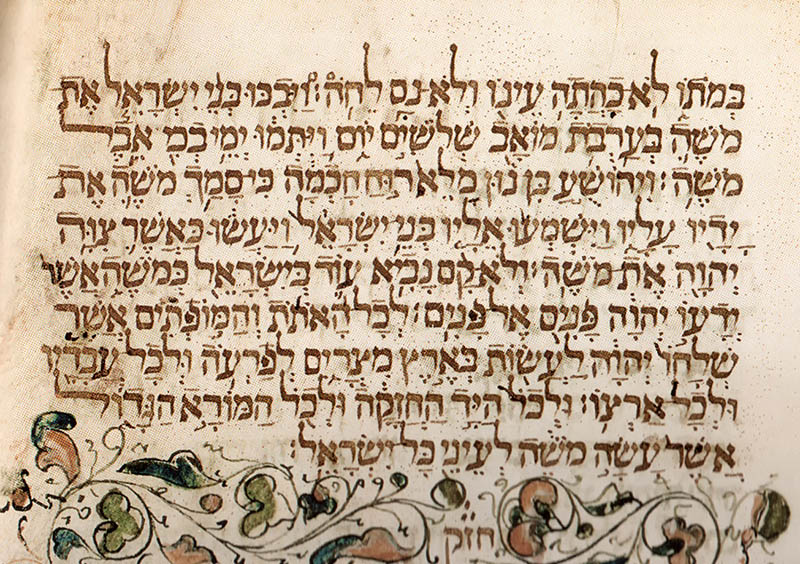 בְּמֹתוֹ לֹא כָהֲתָה עֵינוֹ וְלֹא נָס לֵחֹה׃ וַיִּבְכּוּ בְנֵי יִשְׂרָאֵל אֶת
מֹשֶׁה בְּעַרְבֹת מוֹאָב שְׁלֹשִׁים יוֹם וַיִּתְּמוּ יְמֵי בְכִ אֵבֶל
מֹשֶׁה׃ וִיהוֹשֻׁעַ בִּן נוּן מָלֵא רוּחַ חָכְמָה כִּי סָמַךְ מֹשֶׁה אֶת
יָדָיו עָלָיו וַיִּשְׁמְעוּ אֵלָיו בְּנֵי יִשְׂרָאֵל וַיַּעֲשׂוּ כַּאֲשֶׁר צִוָּה
יְהוָה אֶת מֹשֶׁה׃ וְלֹא קָם נָבִיא עוֹד בְּיִשְׂרָאֵל כְּמֹשֶׁה אֲשֶׁר
יְדָעוֹ יְהוָה פָּנִים אֶל פָּנִים׃ לְכָל הָאֹתֹת וְהַמּוֹפְתִים אֲשֶׁר
שְׁלָחוֹ יְהוָה לַעֲשׂוֹת בְּאֶרֶץ מִצְרָיִם לְפַרְעֹה וּלְכָל עֲבָדָיו
וּלְכָל אַרְצוֹ׃ וּלְכֹל הַיָּד הַחֲזָקָה וּלְכֹל הַמּוֹרָא הַגָּדוֹל
אֲשֶׁר עָשָׂה מֹשֶׁה לְעֵינֵי כָּל יִשְׂרָאֵל׃
חזק